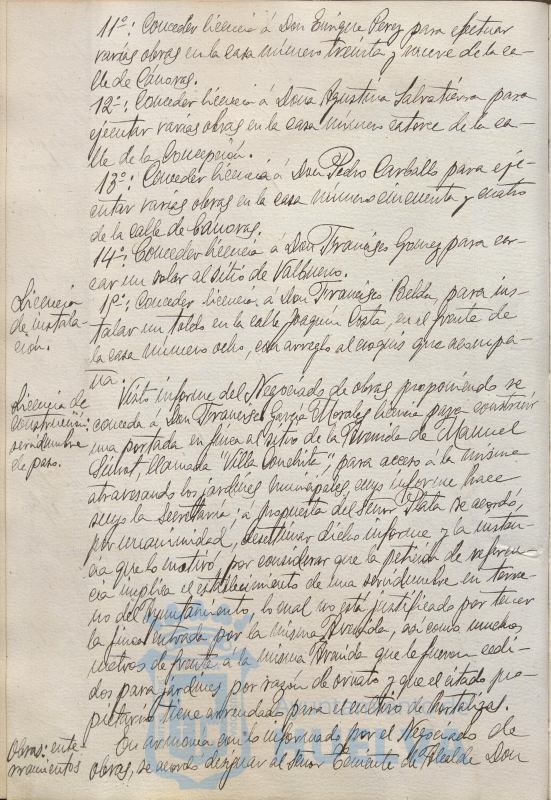 11º: Conceder licencia á Don Enrique Perez para efectuar
varias obras en la casa número treinta y nueve de la ca-
lle de Cánovas.
12º: Conceder licencia á Doña Agustina Salvatierra para
ejecutar varias obras en la casa número catorce de la ca-
lle de la Concepción.
13º: Conceder licencia á Don Pedro Carballo para eje-
cutar varias obras en la casa número cincuenta y cuatro
de la calle de Cánovas.
14º: Conceder licencia á Don Francisco Gomez para cer-
car un solar al sitio de Valbueno.
Licencia
de instala-
ción.
15º: Conceder licencia á Don Francisco Belda, para ins-
talar un toldo en la calle Joaquín Costa, en el frente de
la casa número ocho, con arreglo al croquis que acompa-
ña.
Licencia de
construcción:
servidumbre
de paso.
Visto informe del Negociado de obras proponiendo se
conceda á Don Francisco García Morales licencia para construir
una portada en finca al sitio de la Avenida de Manuel
Siurot, llamada "Villa Conchita", para acceso á la misma
atravesando los jardines municipales, cuyo informe hace
suyo la Secretaría á propuesta del Señor Plata se acordó,
por unanimidad, desestimar dicho informe y la instan-
cia que lo motivó, por considerar que la petición de referen-
cia implica el establecimiento de una servidumbre en terre-
no del Ayuntamiento, lo cual no está justificado por tener
la finca entrada por la misma Avenida, así como muchos
metros de frente a la misma Avenida que le fueron cedi-
dos para jardines por razón de ornato y que el citado pro-
pietario tiene arrendado para el cultivo de hortalizas.
Obras: ente-
rramientos
En armonía con lo informado por el Negociado de
obras, se acordó designar al Señor Teniente de Alcalde Don
HUELVA